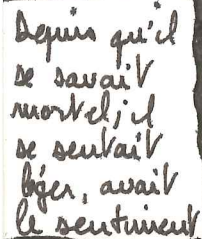 Depuis qu'il
se savait
mortel, il
se sentait
léger, avait
le sentiment